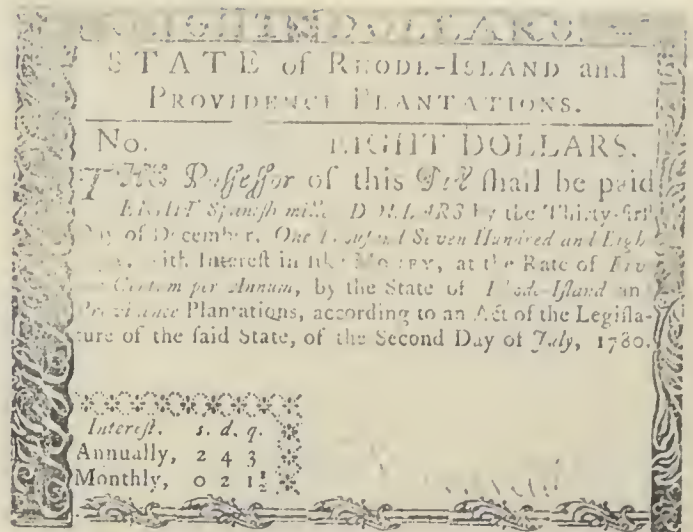 EIGHT DOLLARS.
STATE of RHODE-ISLAND and
PROVIDENCE PLANTATIONS.
No. EIGHT DOLLARS.
THE Poſſeſſor of this Bill ſhall be paid
EIGHT Spaniſh mill'd DOLLARS by the Thirty-firſt
Day of December, One Thouſand Seven Hundred and Eigh-
with Intereſt in like MONEY, at the Rate of Five
Centum per Annum, by the State of Rhode-Iſland and
Providence Plantations, according to an Act of the Legiſla-
ture of the ſaid State, of the Second Day of July, 1780.
Intereſt. s. d. q.
Annually, 2 4 3
Monthly, 0 2 1½